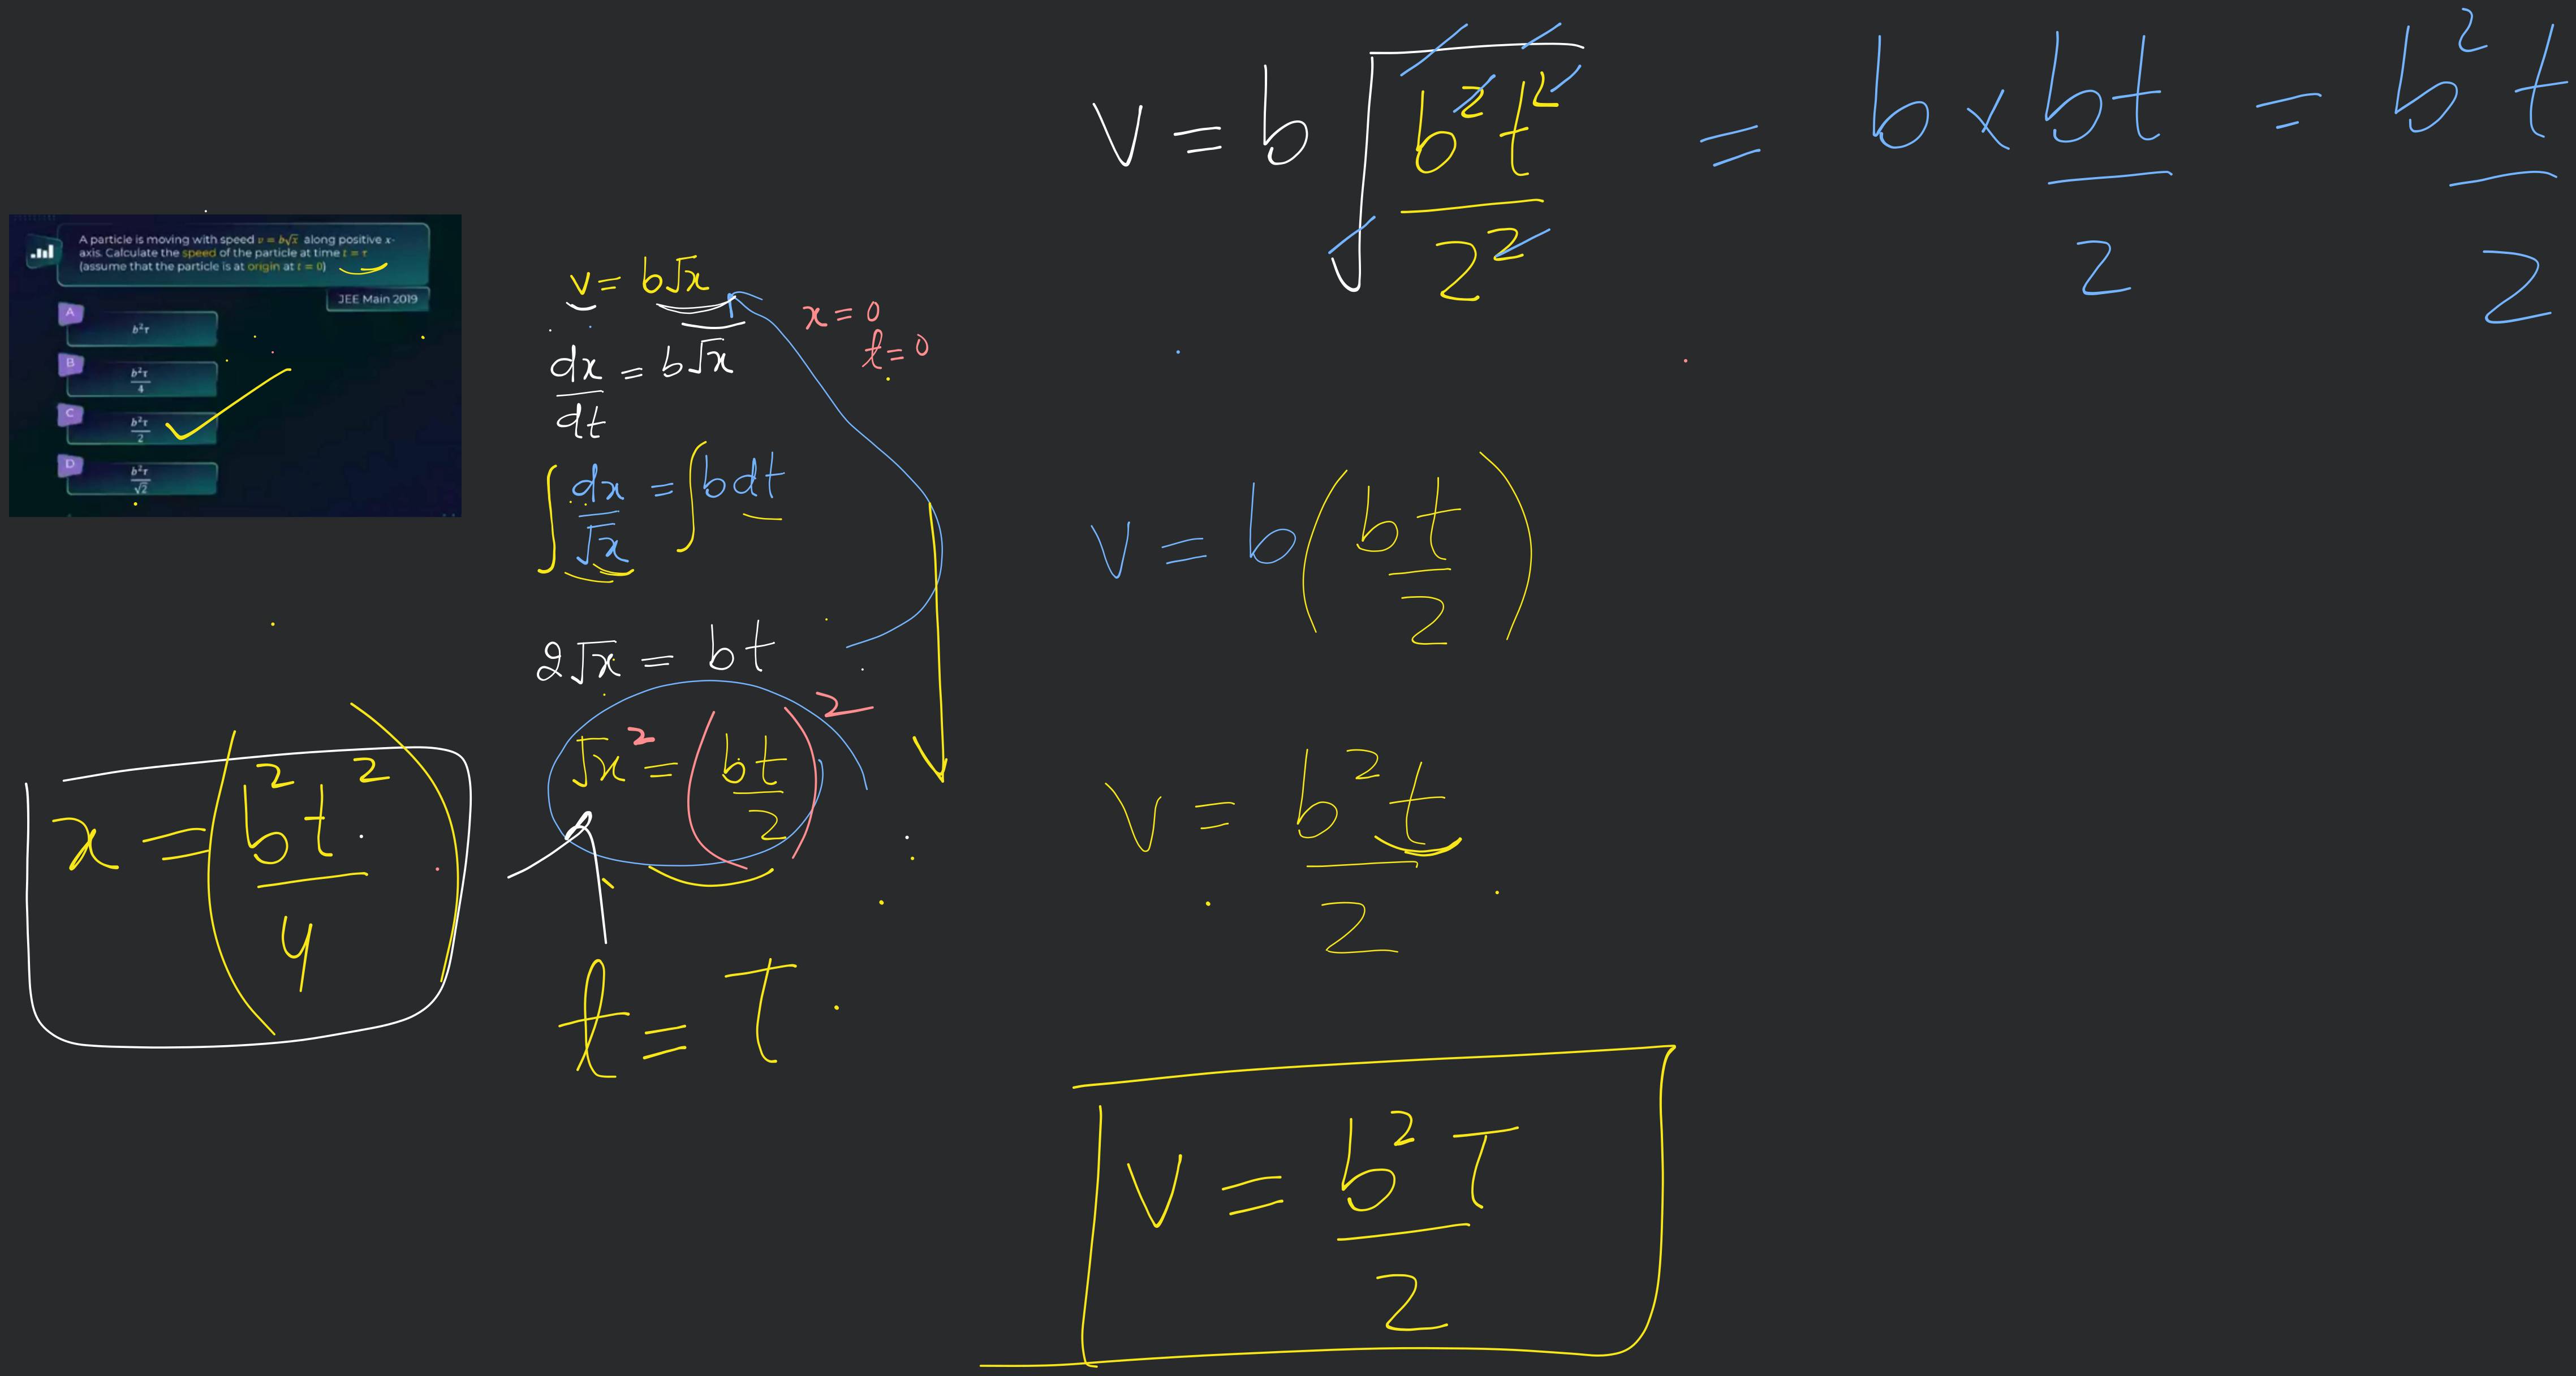 A particle is moving with speed v = b√x along positive x-
axis. Calculate the speed of the particle at time t = τ
(assume that the particle is at origin at t = 0)
JEE Main 2019
A b²τ
B b²τ/4
C b²τ/2
D b²τ/√2
v = b√x
x = 0
t = 0
dx/dt = b√x
∫ dx/√x = ∫ b dt
2√x = bt
√x² = (bt/2)²
x = (b²t²/4)
t = τ
v = b√(b²t²/2²) = b × bt/2 = b²t/2
v = b(bt/2)
v = b²t/2
v = b²τ/2